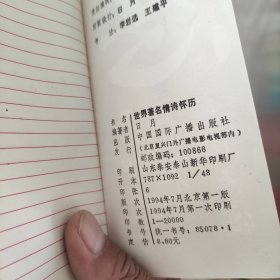 日 月
李岩洁 王建华
书 名 世界著名情诗怀历
编著者 日 月
出 版 中国国际广播出版社
发 行 (北京复兴门外广播电影电视部内)
邮政编码:100866
印 刷 山东泰安泰山新华印刷厂
开 本 787×1092 1/48
印 张 6
版 次 1994年7月北京第一版
印 次 1994年7月第一次印刷
印 数 1—20000
书 号 统一书号:85078·1
定 价 8.80元